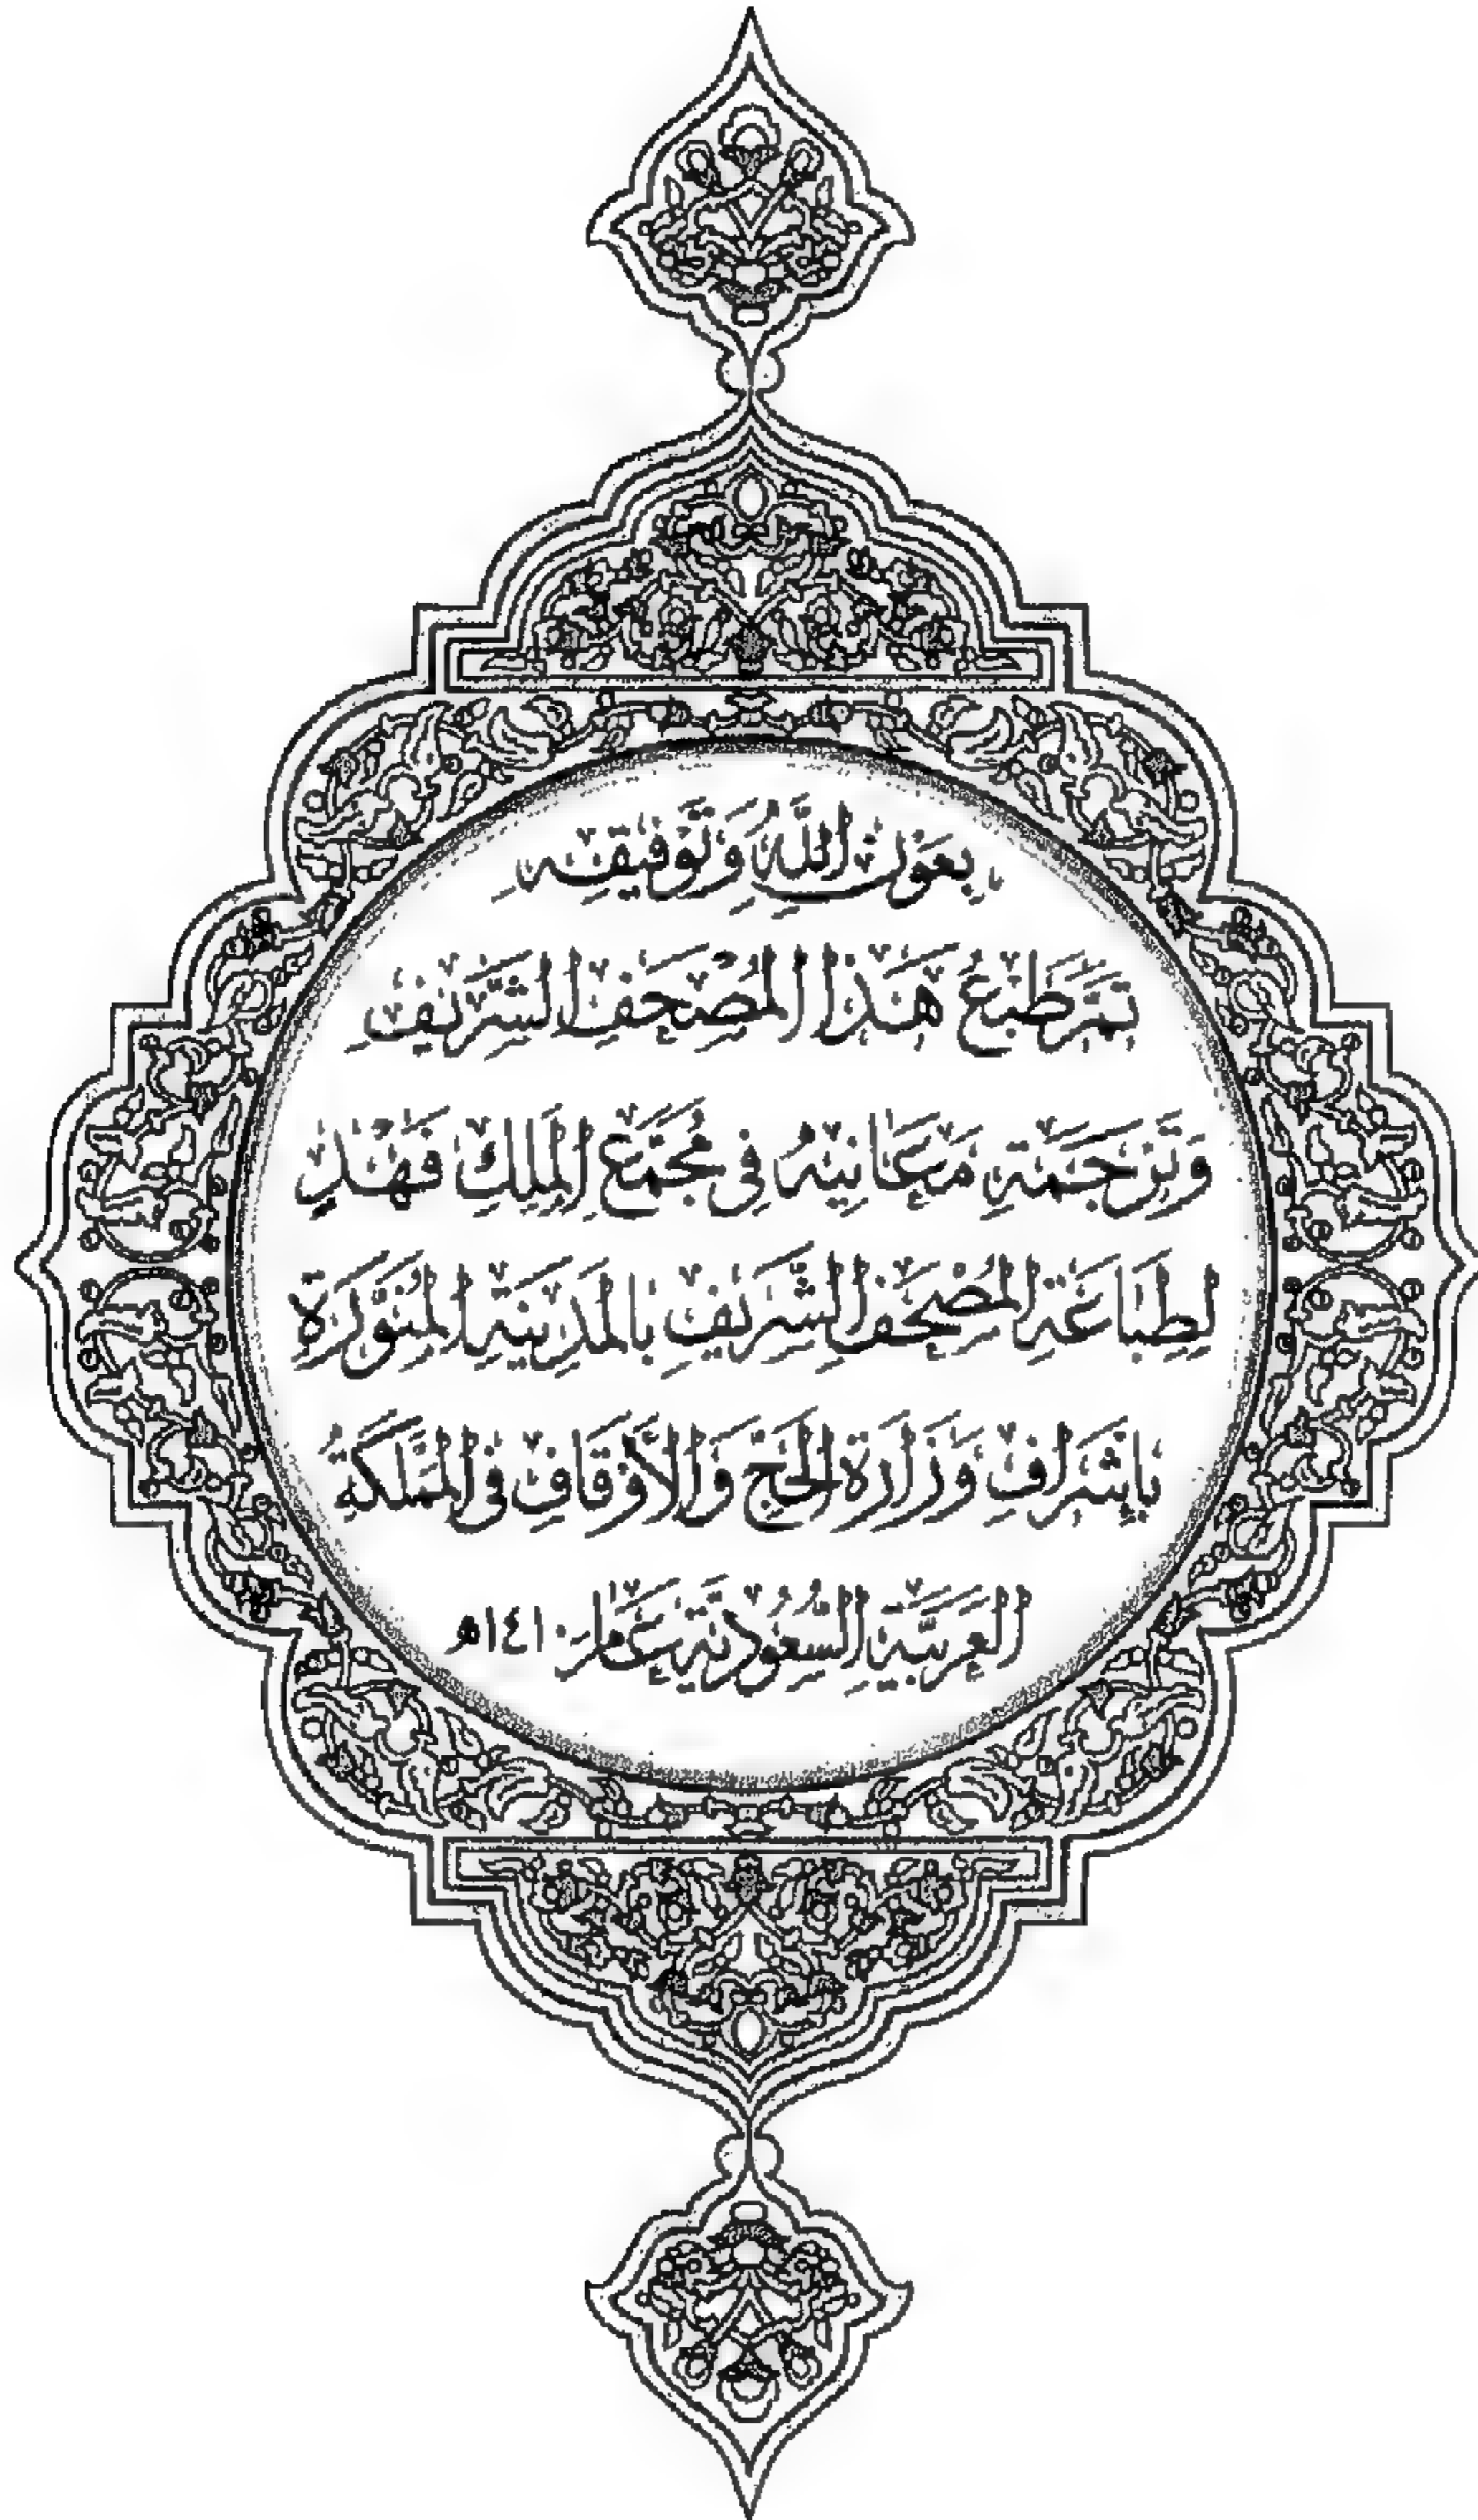 بِعَوْنِ اللَّهِ وَتَوْفِيقِهِ
تَمَّ طَبْعُ هَذَا الْمُصْحَفِ الشَّرِيفِ
وَتَرْجَمَةِ مَعَانِيهِ فِي مُجَمَّعِ الْمَلِكِ فَهْدٍ
لِطِبَاعَةِ الْمُصْحَفِ الشَّرِيفِ بِالْمَدِينَةِ الْمُنَوَّرَةِ
بِإِشْرَافِ وَزَارَةِ الْحَجِّ وَالْأَوْقَافِ فِي الْمَمْلَكَةِ
الْعَرَبِيَّةِ السَّعُودِيَّةِ عَامَ ١٤١٠هـ